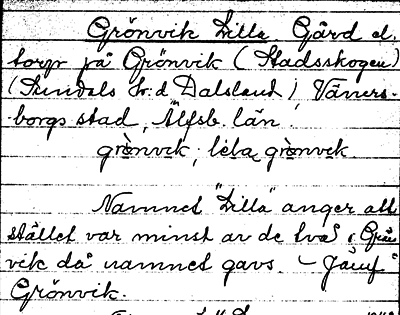 Grönvik Lilla Gård el.
torp på Grönvik (Stadsskogen)
(Sundals hd Dalsland) Väners-
borgs stad, Älfsb. län.
grònvik, lɩla grònvik
Namnet "Lilla" anger att
stället var minst av de två i Grön
vik då namnet gavs. - Jämf.
Grönvik.